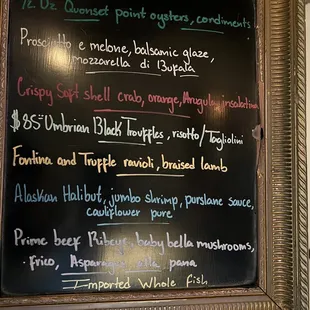 1/2 Oz Quonset point oysters, condiments
Prosciutto e melone, balsamic glaze,
mozzarella di Bufala
Crispy Soft shell crab, orange, Arugula insalatina
$85 Umbrian Black Trouffles, risotto/Tagliolini
Fontina and Truffle ravioli, braised lamb
Alaskan Halibut, jumbo shrimp, purslane sauce,
cauliflower pure
Prime beef Ribeye, baby bella mushrooms,
frico, Asparagus alla pana
Imported Whole Fish